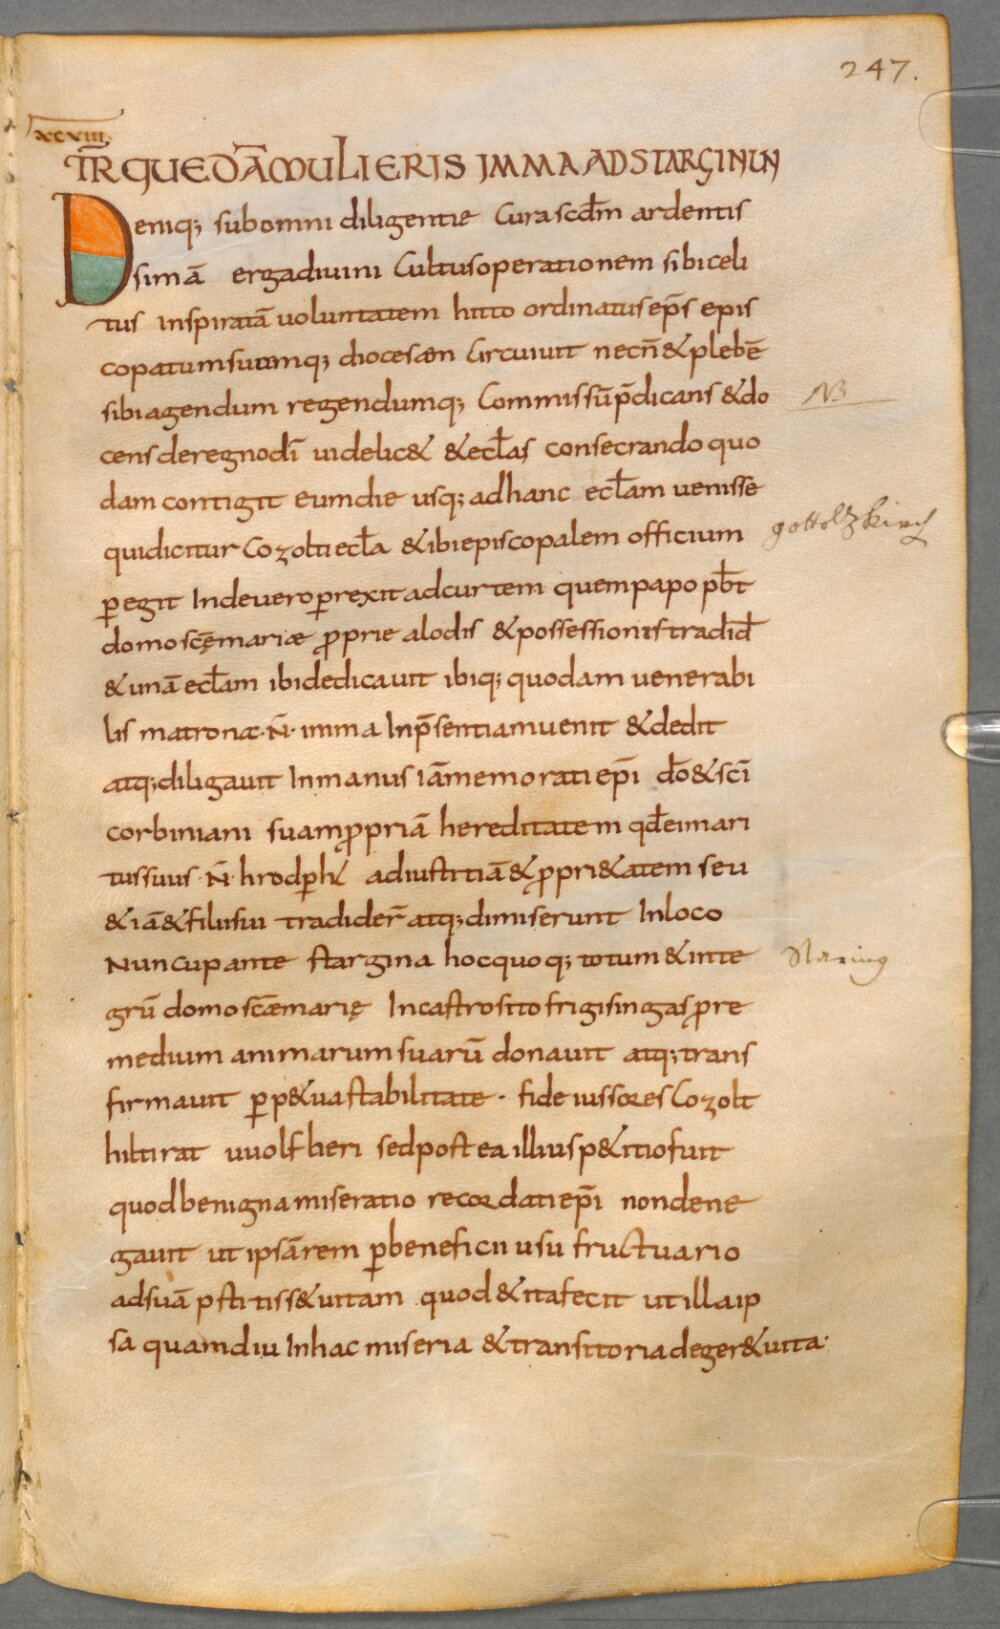 247.
xcviii.
TR̄ QUEDĀ MULIERIS IMMA AD STARGINUN
Deniq; sub omni diligentię cura scd̄m ardentis
simā erga diuini cultus operationem sibi celi
tus inspiratā uoluntatem hitto ordinatus ep̄s epis
copatum suumq; diocesaen circuiuit necn̄ & plebē
sibi agendum regendumq; commissū p̄dicans & do
NB
cens de regno dī uidelic& & ecl̄as consecrando quo
dam contigit eum die usq; ad hanc ecl̄am uenisse
gottoltzkirch
qui dicitur Cozolti ecl̄a & ibi episcopalem officium
p̄egit Inde uero p̄rexit ad curtem quem papo pb̄t
domo scę̄ mariæ p̄prie alodis & possessionis tradid̄
& unā ecl̄am ibi dedicauit ibiq; quodam uenerabi
lis matronæ · N̄ · imma In p̄sentiam uenit & dedit
atq; diligauit In manus iā memorati ep̄i dō & scī
corbiniani suam p̄priā hereditatem qd̄ ei mari
tus suus · N̄ · hrodp̄ht ad iustitiā & p̄pri&atem seu
& iā & filii sui tradider̄ atq; dimiserunt In loco
Nuncupante stargina hoc quoq; totum & inte
Staring
grū domo scǣ marię In castro sito frigisingas p̄ re
medium animarum suarū donauit atq; trans
firmauit p̄ p&ua stabilitate · fideiussores Cozolt
hiltirat uuolfheri sed postea illius p&itio fuit
quod benigna miseratio recordati ep̄i non dene
gauit ut ipsā rem p̄ beneficii usu fructuario
ad suā p̄stitiss& uitam quod & ita fecit ut illa ip
sa quamdiu In hac miseria & transitoria deger& uita ·